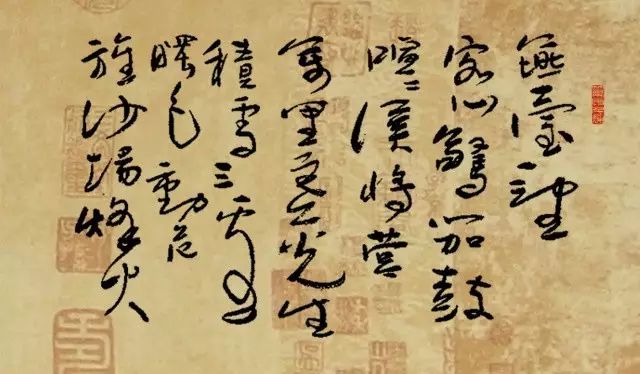 燕臺一望
客心驚笳鼓
喧喧漢將營
萬里寒光生
積雪三邊
曙色動危
旌沙場烽火